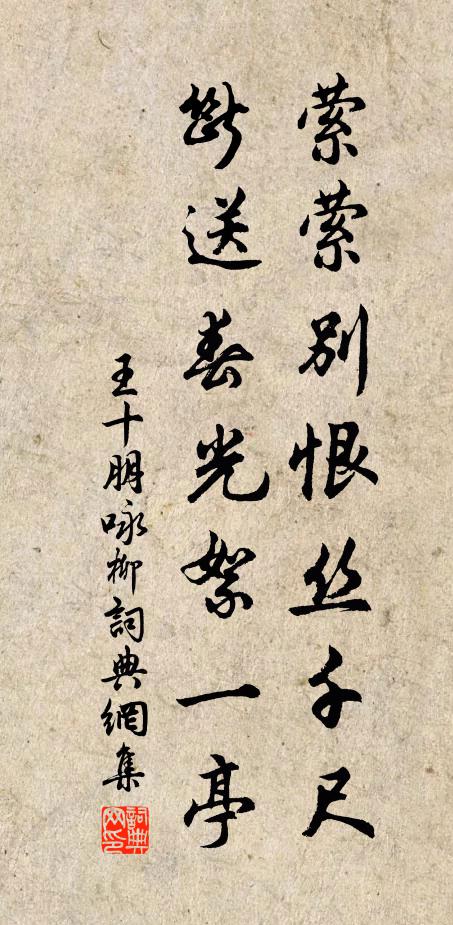 萦萦别恨丝千尺
断送春光絮一亭
王十朋咏柳词典網集
詞典网印